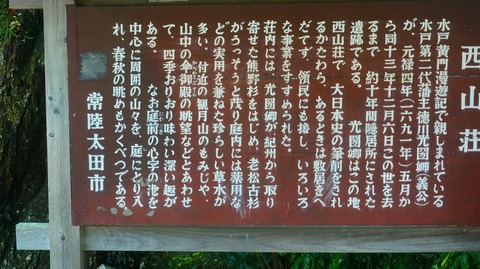 西山荘
水戸黄門漫遊記で親しまれている
水戸第二代藩主徳川光圀卿(義公)
が、元禄四年(一六九一年)五月か
ら同十三年十二月六日この世を去
るまで、約十年間隠居所にされた
遺跡である。 光圀卿はこの地、
西山荘で、大日本史の筆削をされ
るかたわら、あるときは敷居をへ
だてず、領民にも接し、いろいろ
な事業をすすめられた。
荘内には、光圀卿が紀州から取り
寄せた熊野杉をはじめ、老松古杉
がうっそうと茂り庭内には薬用な
どの実用を兼ねた珍らしい草木が
多い、付近の観月山のもみじや、
山中の傘御殿の眺望などとあわせ
て、四季おりおり味わい深い趣が
ある。 なお庭前の心字の池を
中心に周囲の山々を、庭にとり入
れ、春秋の眺めもかくべつである。
常陸太田市